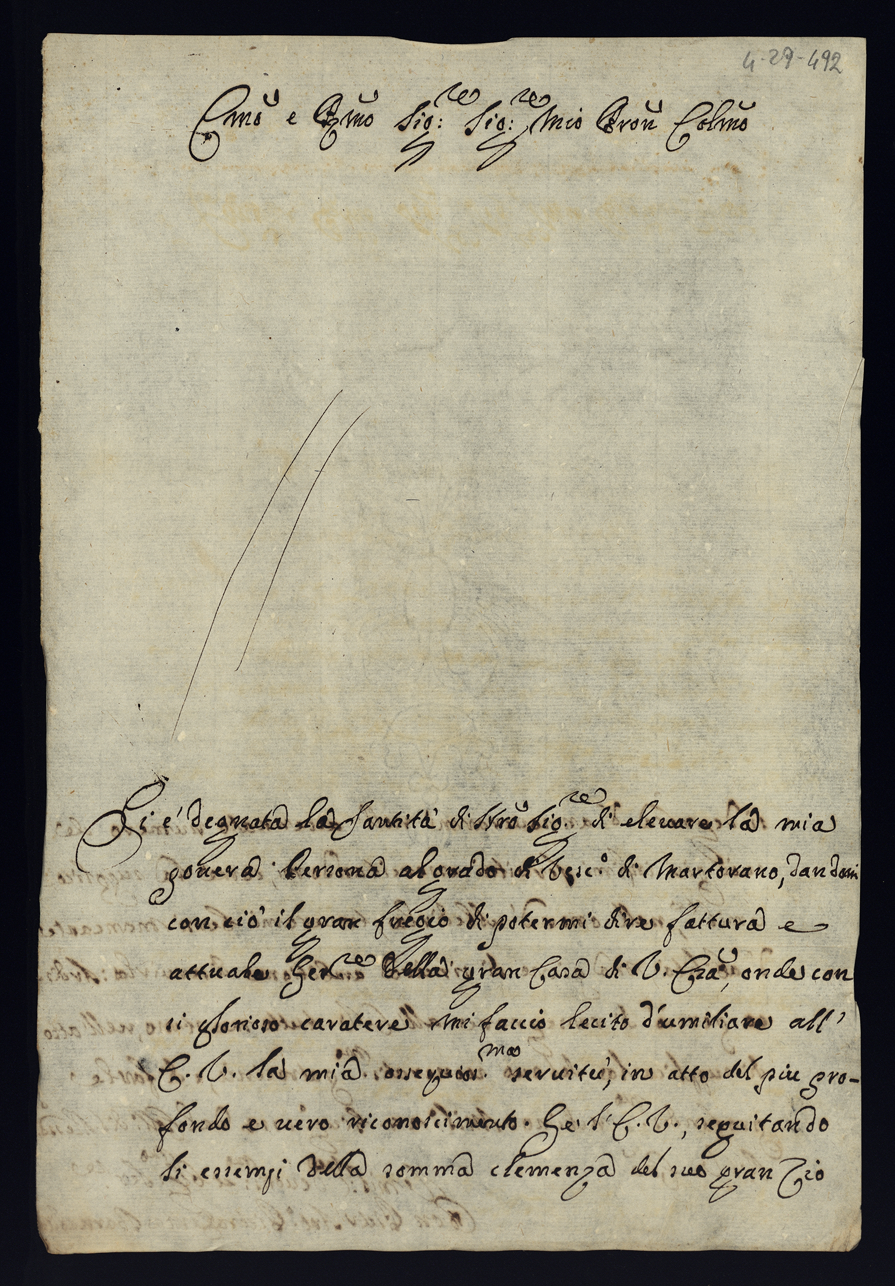 4-29-492
Emo e Rmo Sig:re Sig:re Mio Pron Colmo
Si é degnata la Santità di Nro Sig.re di elevare la mia
povera Persona al grado di Vesc.o di Martorano, dandomi
con ciò il gran fregio di potermi dire fattura e
attuale Ser.re della gran Casa di V. Eza, onde con
si glorioso caratere mi faccio lecito d'umiliare all'
E. V. la mia osseq.ma servitù, in atto del piu pro-
fondo e vero riconoscimento. Se l'E. V., seguitando
li essempi della somma clemenza del suo gran Zio